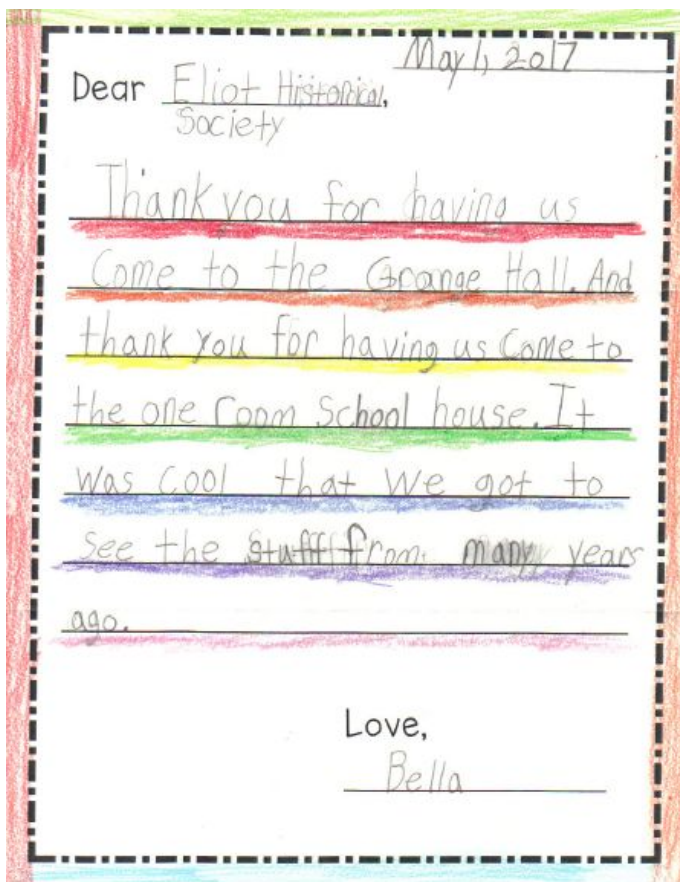 May 1, 2017
Dear Eliot Historical,
Society
Thank you for having us
Come to the Grange Hall. And
thank you for having us Come to
the one room School house. It
was cool that we got to
see the stuff from many years
ago.
Love,
Bella